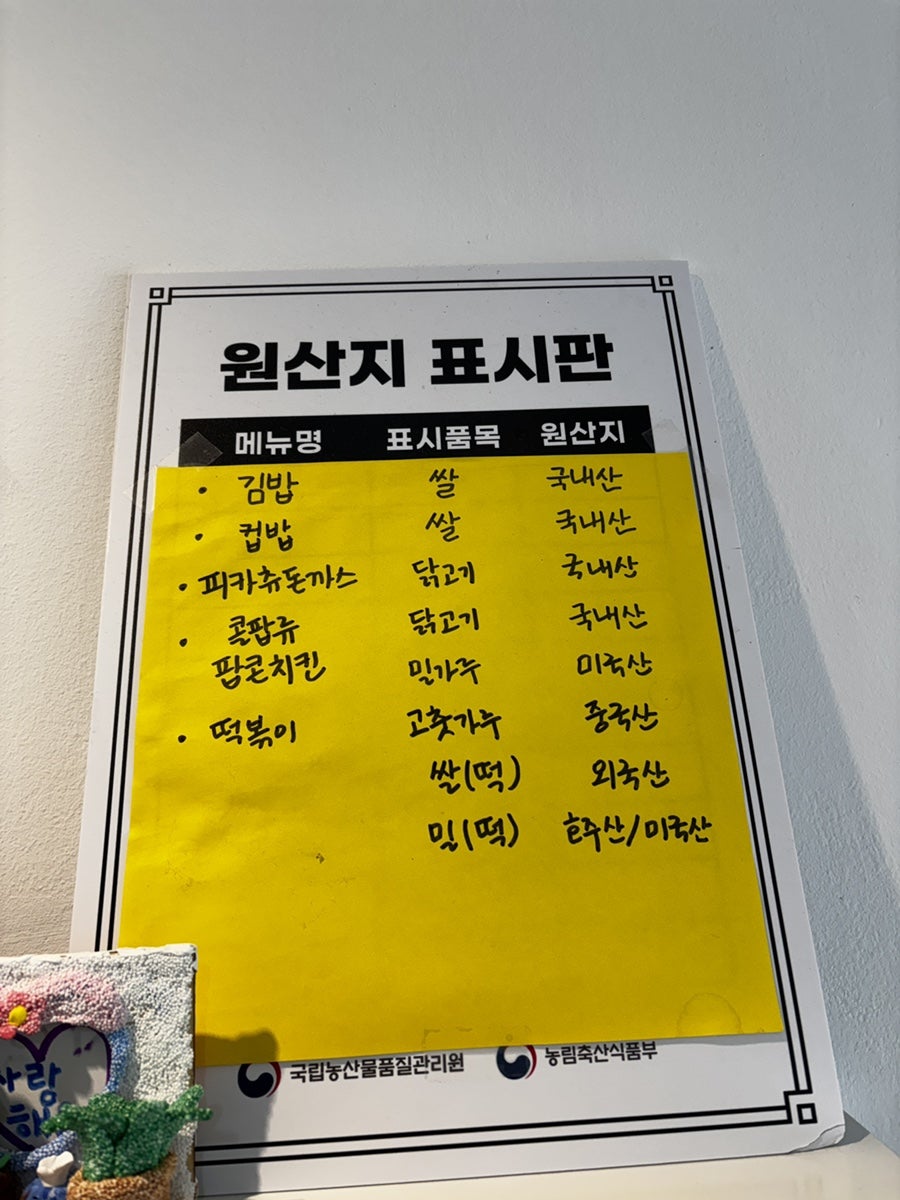 원산지 표시판
메뉴명 표시품목 원산지
· 김밥 쌀 국내산
· 컵밥 쌀 국내산
· 피카츄돈까스 닭고기 국내산
· 콜팝류 닭고기 국내산
팝콘치킨 밀가루 미국산
· 떡볶이 고춧가루 중국산
쌀(떡) 외국산
밀(떡) 호주산/미국산
국립농산물품질관리원 농림축산식품부
사랑
해